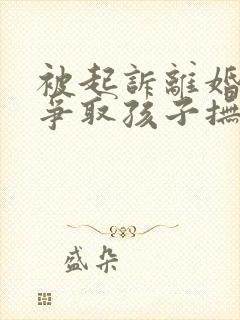 被起訴離婚
爭取孩子撫
盛朵